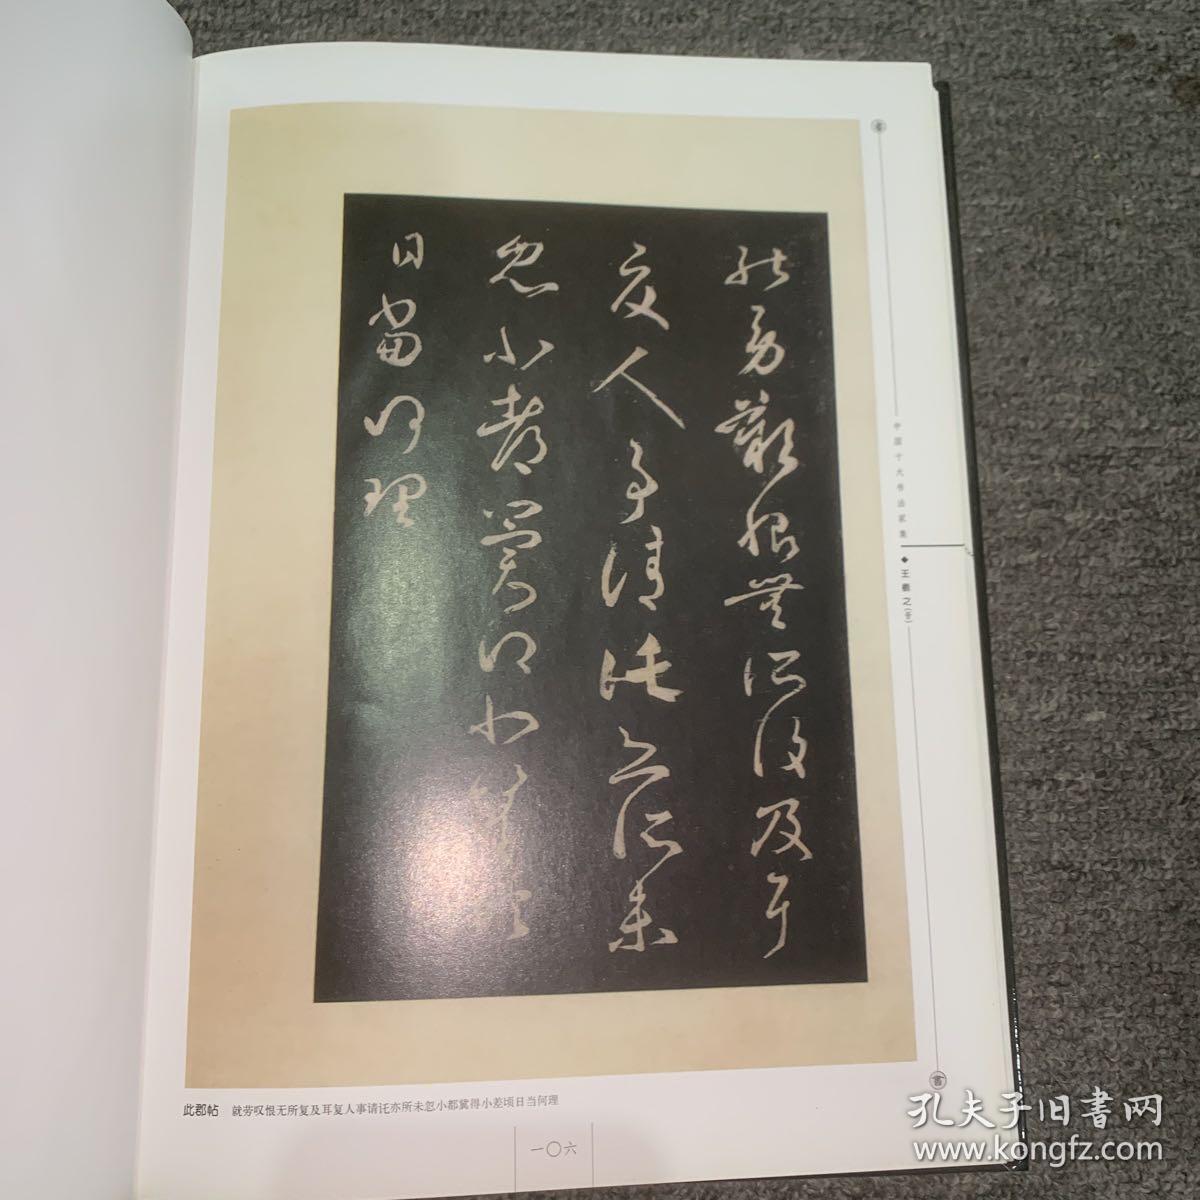 就劳叹恨无所复及耳
复人事请讬亦所未
忽小都冀得小差顷
日当何理
中国十大书法家集
◆王羲之(壹)
書
此郡帖 就劳叹恨无所复及耳复人事请讬亦所未忽小都冀得小差顷日当何理
一〇六
孔夫子旧书网
www.kongfz.com